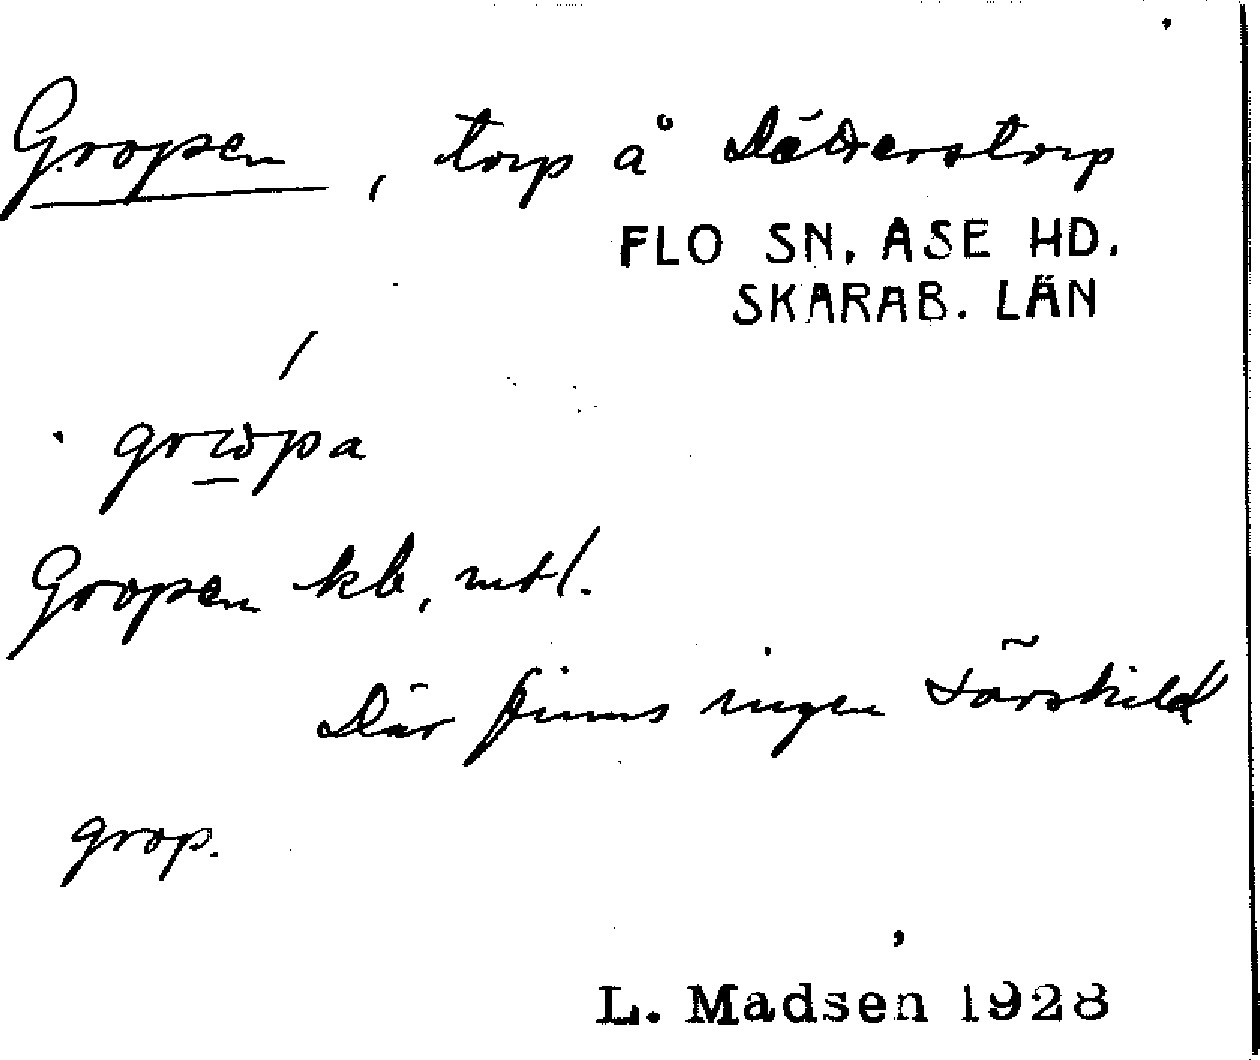 Gropen, torp å Däderstorp
FLO SN. ASE HD.
SKARAB. LÄN
grωpa
Gropen kb, mtl.
Där finns ingen särskild
grop.
L. Madsen 1928